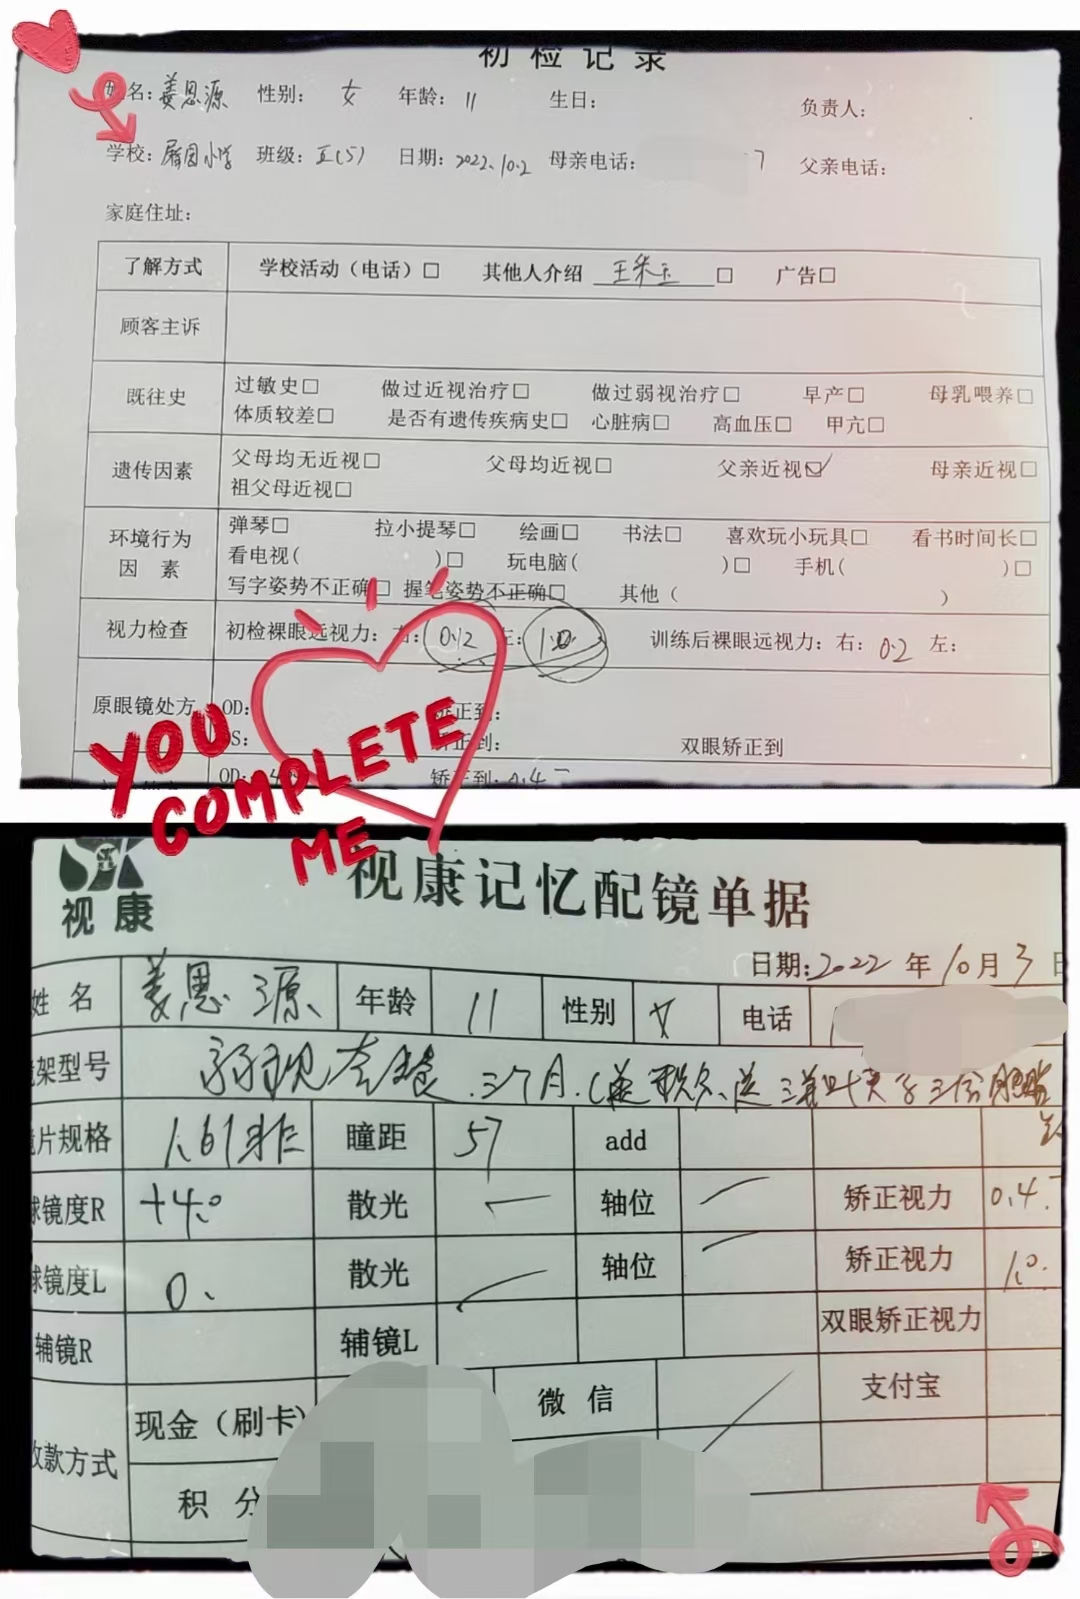 初检记录
姓名：姜思源 性别： 女 年龄：11 生日： 负责人：
学校：屏园小学 班级：五(5) 日期：2022.10.2 母亲电话： 7 父亲电话：
家庭住址：
了解方式 学校活动（电话）□ 其他人介绍 □ 广告□
顾客主诉
既往史 过敏史□ 做过近视治疗□ 做过弱视治疗□ 早产□ 母乳喂养□
体质较差□ 是否有遗传疾病史□ 心脏病□ 高血压□ 甲亢□
遗传因素 父母均无近视□ 父母均近视□ 父亲近视☑ 母亲近视□
祖父母近视□
环境行为因素 弹琴□ 拉小提琴□ 绘画□ 书法□ 喜欢玩小玩具□ 看书时间长□
看电视( )□ 玩电脑( )□ 手机( )□
写字姿势不正确□ 握笔姿势不正确□ 其他（ ）
视力检查 初检裸眼远视力：右：0.12 左：1.0 训练后裸眼远视力：右：0.2 左：
原眼镜处方 OD： 矫正到：
OS： 矫正到： 双眼矫正到
OD： 矫正到：0.4
YOU
COMPLETE
ME
视康
视康记忆配镜单据
日期：2022 年 10 月 3 日
姓名 姜思源 年龄 11 性别 女 电话
架型号 弱视套餐 三个月
片规格 1.61非 瞳距 57 add
球镜度R +4.0 散光 — 轴位 — 矫正视力 0.4
球镜度L 0. 散光 — 轴位 — 矫正视力 1.0.
辅镜R 辅镜L 双眼矫正视力
收款方式 现金（刷卡） 微信 支付宝
积分